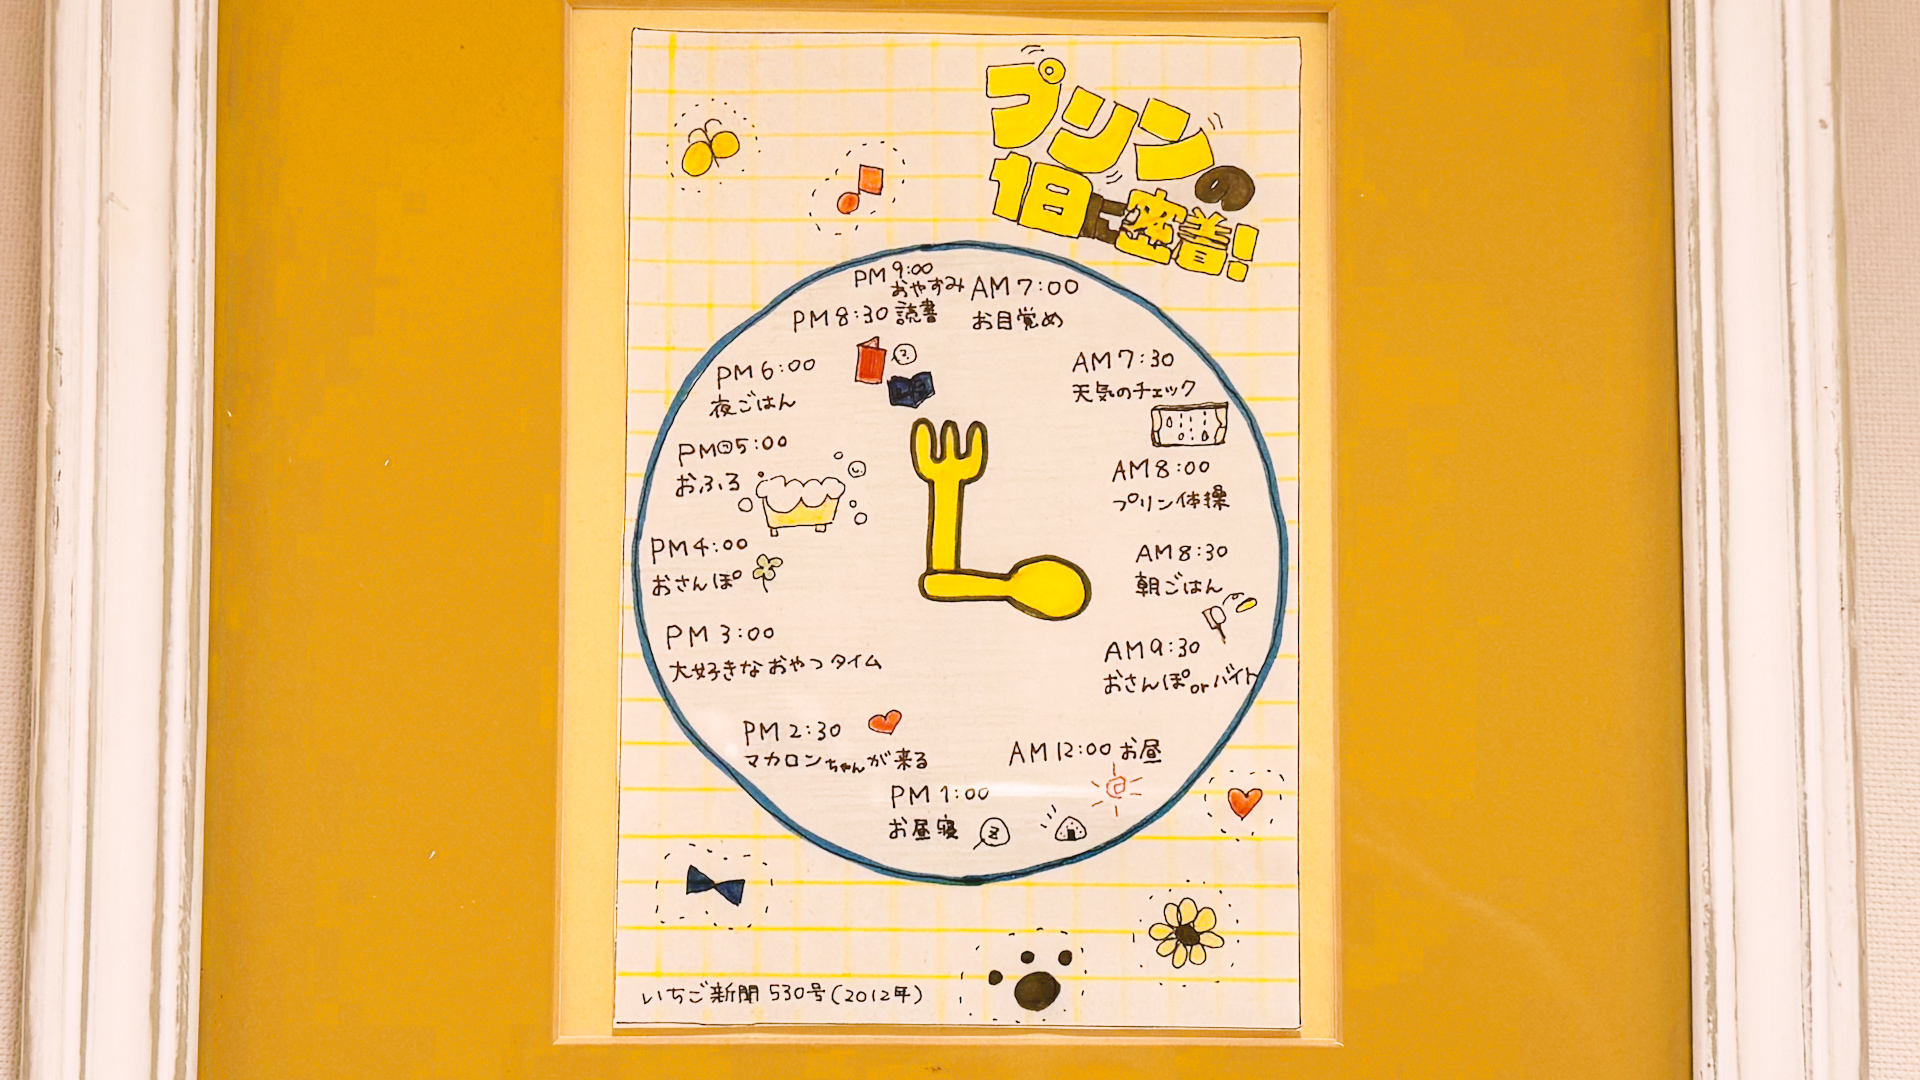 プリンの
1日に密着!
AM 7:00
お目覚め
AM 7:30
天気のチェック
AM 8:00
プリン体操
AM 8:30
朝ごはん
AM 9:30
おさんぽorバイト
AM 12:00 お昼
PM 1:00
お昼寝
z
PM 2:30
マカロンちゃんが来る
PM 3:00
大好きなおやつタイム
PM 4:00
おさんぽ
PM 5:00
おふろ
PM 6:00
夜ごはん
PM 8:30 読書
PM 9:00
おやすみ
いちご新聞 530号(2012年)